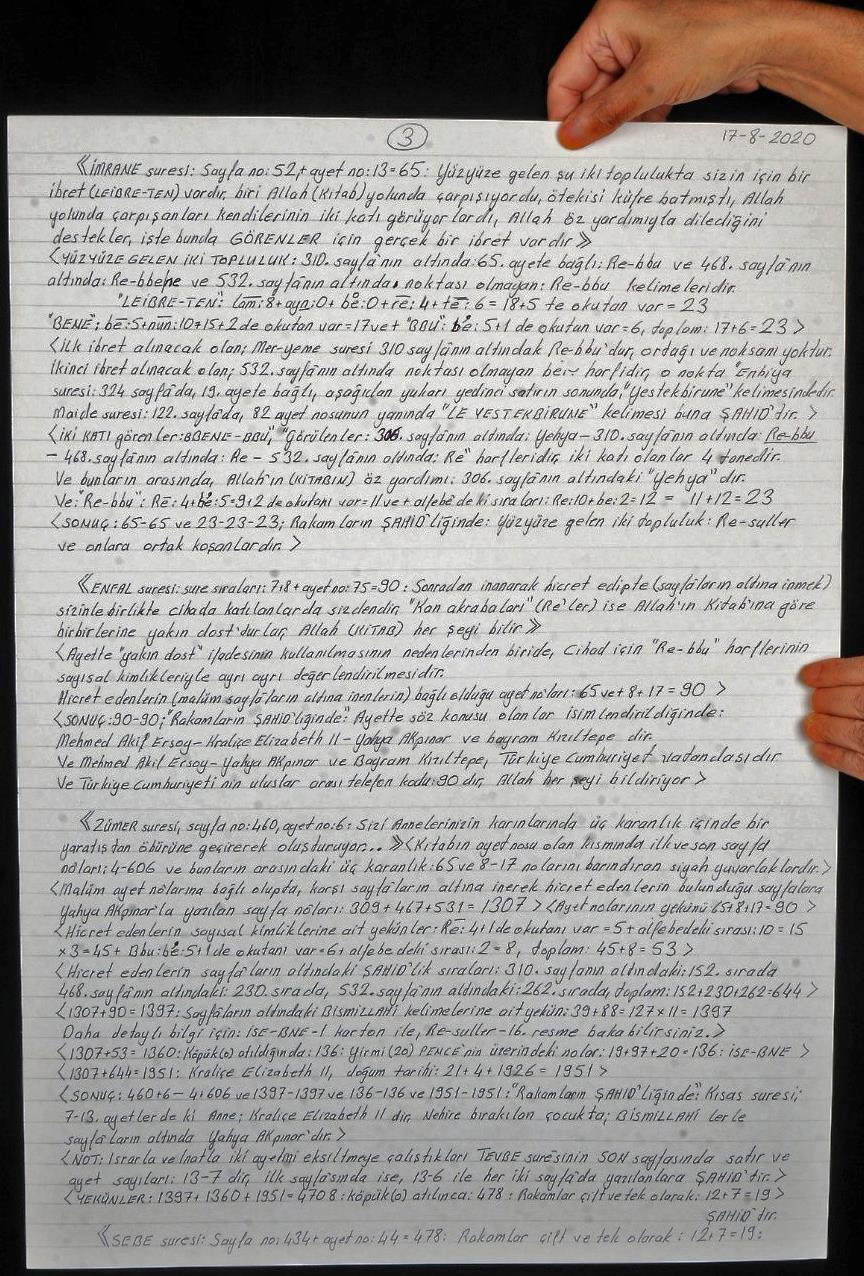 3
17-8-2020
《İMRANE suresi: Sayfa no: 52+ ayet no: 13=65: Yüzyüze gelen şu iki toplulukta sizin için bir
ibret (LEİBRE-TEN) vardır, biri Allah (Kitab) yolunda çarpışıyordu, ötekisi küfre batmıştı, Allah
yolunda çarpışanları kendilerinin iki katı görüyorlardı, Allah öz yardımıyla dilediğini
destekler, işte bunda GÖRENLER için gerçek bir ibret vardır》
<YÜZYÜZE GELEN İKİ TOPLULUK: 310. sayfa'nın altında: 65. ayete bağlı: Re-bbu ve 468. sayfa'nın
altında: Re-bbehe ve 532. sayfa'nın altında, noktası olmayan: Re-bbu kelimeleridir.
"LEİBRE-TEN": lam: 8+ ayn: 0+ be: 0+ re: 4+ te: 6 = 18+5 te okutan var = 23
"BENE"; be: 5+ nun: 10=15+2 de okutan var=17 ve+ "BBU": be: 5+1 de okutan var=6, toplam: 17+6=23>
<İlk ibret alınacak olan; Mer-yeme suresi 310 sayfa'nın altındak Re-bbu'dur, ortağı ve noksanı yoktur.
İkinci ibret alınacak olan; 532. sayfa'nın altında noktası olmayan be harfidir, o nokta "Enbiya
suresi: 324 sayfa'da, 19. ayete bağlı, aşağıdan yukarı yedinci satırın sonunda, "Yestekbirune" kelimesindedir.
Maide suresi: 122. sayfa'da, 82 ayet nosunun yanında "LE YESTEKBİRUNE" kelimesi buna ŞAHİD'tir.>
<İKİ KATI görenler: BBENE-BBU, "Görülenler: 306. sayfa'nın altında: Yehya-310. sayfa'nın altında: Re-bbu
- 468. sayfa'nın altında: Re - 532. sayfa'nın altında: Re" harfleridir, iki katı olanlar 4 tanedir.
Ve bunların arasında, Allah'ın (KİTABIN) öz yardımı: 306. sayfa'nın altındaki "Yehya" dır.
Ve: "Re-bbu": Re: 4+ be: 5=9+2 de okutanı var=11 ve+ alfebe'deki sıraları: Re: 10+be: 2=12 = 11+12=23
<SONUÇ: 65-65 ve 23-23-23; Rakamların ŞAHİD'liğinde: Yüzyüze gelen iki topluluk: Re-suller
ve onlara ortak koşanlardır.>
《ENFAL suresi: sure sıraları: 7+8+ ayet no: 75=90: Sonradan inanarak hicret edipte (sayfa'ların altına inmek)
sizinle birlikte cihada katılanlarda sizdendir, "Kan akrabaları" (Re'ler) ise Allah'ın Kitab'ına göre
birbirlerine yakın dost'durlar, Allah (KİTAB) her şeyi bilir》
<Ayette "yakın dost" ifadesinin kullanılmasının nedenlerinden biride, Cihad için "Re-bbu" harflerinin
sayısal kimlikleriyle ayrı ayrı değerlendirilmesidir.
Hicret edenlerin (malüm sayfa'ların altına inenlerin) bağlı olduğu ayet no'ları: 65 ve+8+17=90>
<SONUÇ: 90-90; "Rakamların ŞAHİD'liğinde": Ayette söz konusu olanlar isimlendirildiğinde:
Mehmed Akif Ersoy-Kraliçe Elizabeth II-Yahya AKpınar ve bayram Kızıltepe dir.
Ve Mehmed Akif Ersoy-Yahya AKpınar ve Bayram Kızıltepe, Türkiye Cumhuriyet vatandaşıdır
Ve Türkiye Cumhuriyeti'nin uluslar arası telefon kodu: 90 dır, Allah her şeyi bildiriyor>
《ZÜMER suresi, sayfa no: 460, ayet no: 6: Sizi Annelerinizin karınlarında üç karanlık içinde bir
yaratıştan öbürüne geçirerek oluşturuyor...》<Kitabın ayet nosu olan kısmında ilk ve son sayfa
no'ları: 4-606 ve bunların arasındaki üç karanlık: 65 ve 8-17 no'larını barındıran siyah yuvarlaklardır.>
<Malüm ayet no'larına bağlı olupta, karşı sayfa'ların altına inerek hicret edenlerin bulunduğu sayfalara
Yahya AKpınar'la yazılan sayfa no'ları: 309+467+531=1307> <Ayet no'larının yekünü 65+8+17=90>
<Hicret edenlerin sayısal kimliklerine ait yekünler: Re: 4+1 de okutanı var =5+ alfebedeki sırası: 10=15
×3=45+ Bbu: be: 5+1 de okutanı var=6+ alfebe deki sırası: 2=8, toplam: 45+8=53>
<Hicret edenlerin sayfa'ların altındaki ŞAHİD'lik sıraları: 310. sayfanın altındaki: 152. sırada
468. sayfa'nın altındaki: 230. sırada, 532. sayfa'nın altındaki: 262. sırada, toplam: 152+230+262=644>
<1307+90=1397: Sayfa'ların altındaki BİSMİLLAHİ kelimelerine ait yekün: 39+88=127×11=1397
Daha detaylı bilgi için: İSE-BNE-1 karton ile, Re-suller-16. resme bakabilirsiniz.>
<1307+53=1360: Köpük(o) atıldığında: 136: Yirmi (20) PENCE'nin üzerindeki nolar: 19+97+20=136: İSE-BNE>
<1307+644=1951: Kraliçe Elizabeth II, doğum tarihi: 21+4+1926=1951>
<SONUÇ: 460+6-4+606 ve 1397-1397 ve 136-136 ve 1951-1951: "Rakamların ŞAHİD'liğinde": Kısas suresi;
7-13. ayetlerde ki Anne; Kraliçe Elizabeth II dir, Nehire bırakılan çocukta; BİSMİLLAHİ lerle
sayfa'ların altında Yahya AKpınar'dır.>
<NOT: Israrla ve inatla iki ayetini eksiltmeye çalıştıkları TEVBE suresinin SON sayfasında satır ve
ayet sayıları: 13-7 dir, ilk sayfa'sında ise, 13-6 ile her iki sayfa'da yazılanlara ŞAHİD'tir.>
<YEKÜNLER: 1397+1360+1951=4708: köpük(o) atılınca: 478: Rakamlar çift ve tek olarak: 12+7=19>
ŞAHİD'tir.
《SEBE suresi: Sayfa no: 434+ ayet no: 44=478: Rakamlar çift ve tek olarak: 12+7=19: